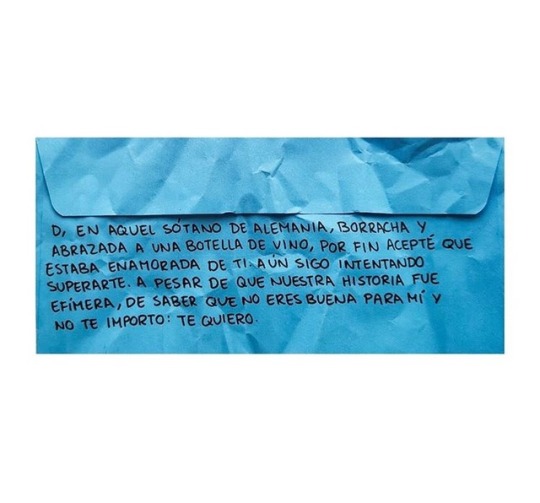 D, EN AQUEL SÓTANO DE ALEMANIA, BORRACHA Y
ABRAZADA A UNA BOTELLA DE VINO, POR FIN ACEPTÉ QUE
ESTABA ENAMORADA DE TI. AÚN SIGO INTENTANDO
SUPERARTE. A PESAR DE QUE NUESTRA HISTORIA FUE
EFÍMERA, DE SABER QUE NO ERES BUENA PARA MÍ Y
NO TE IMPORTO: TE QUIERO.